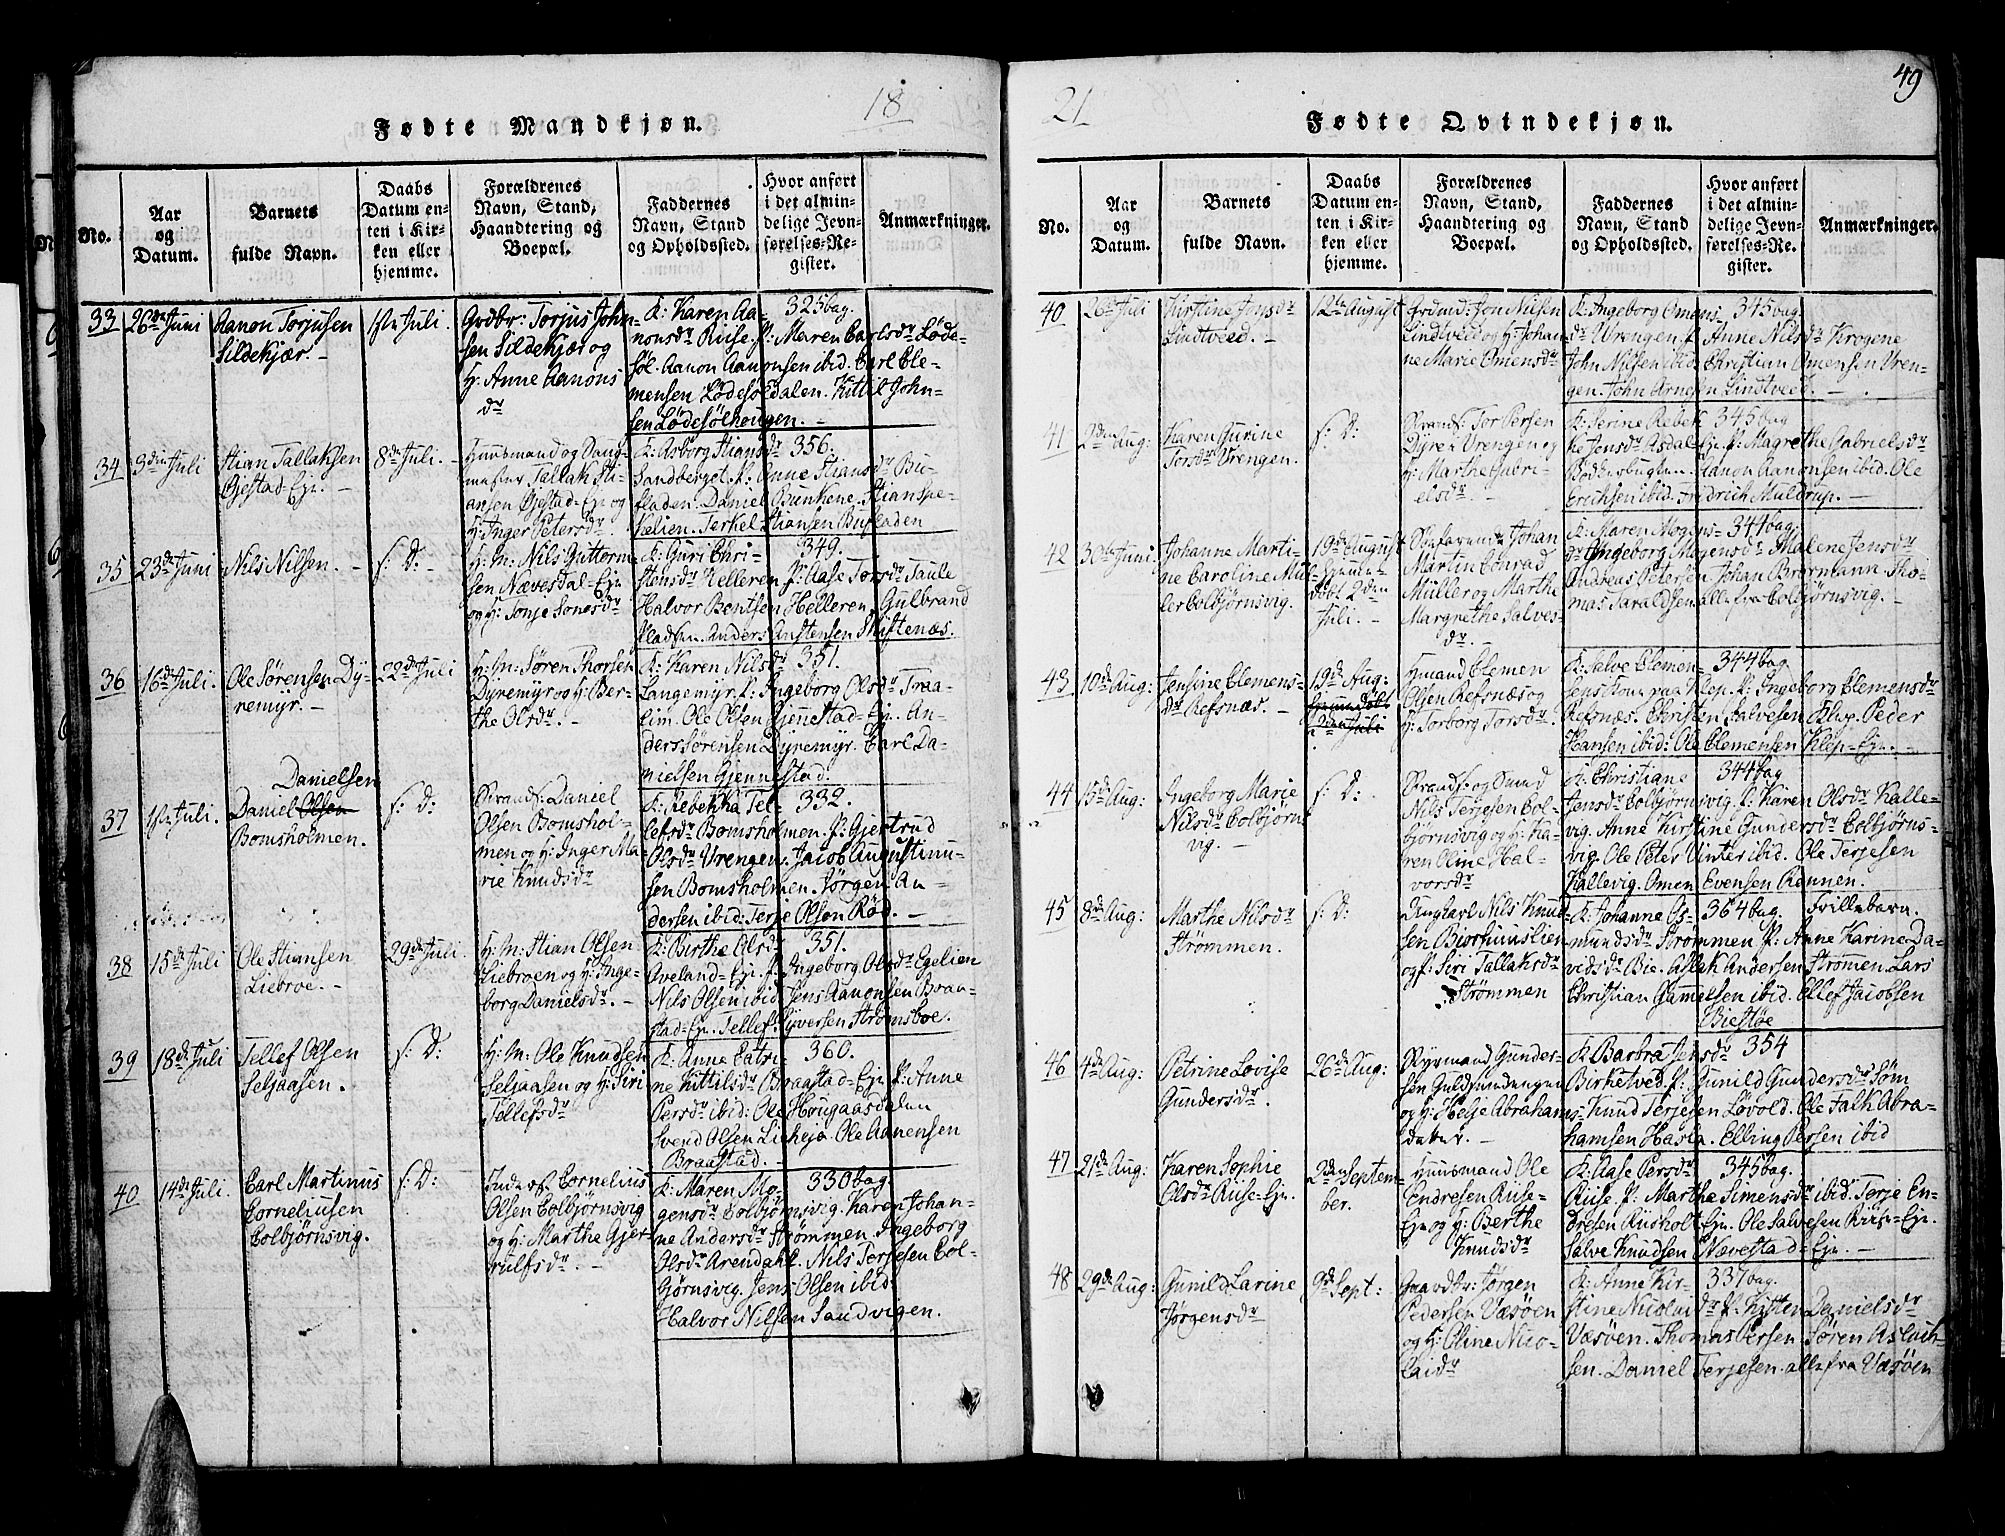 18
Fødte Mandkjøn.
No.
Aar
og
Datum.
Barnets
fulde Navn.
Daabs
Datum en-
ten i Kir-
ken eller
hjemme.
Forældrenes
Navn, Stand,
Haandtering og
Boepæl.
Faddernes
Navn, Stand
og Opholdssted.
Hvor anført
i det almin-
delige Jevn-
førelses-Re-
gister.
Anmærkninger.
33
26de Juni
Aanon Torjusen
Sildekjær. -
1ste Juli.
Grdbr: Torjus John-
sen Sildekjær og
H: Anne Aanons
dr
K: Karen Aa- 325 bag.
nonsdr Riise. P: Maren Carlsdr Løde-
søl. Aanon Aanonsen ibid. Carl Cle-
mensen Lødesøldalen. Kittil John-
sen Lødesølhougen. -
34
3die Juli
Stian Tallaksen
Gjestad-Eje. -
8de Juli. -
Huusmand og
Tallak Sti-
ansen Gjestad-Eje og
H: Inger Petersdr
K: Asborg Stiansdr 356.
Sandberget. P: Anne Stiansdr Bu-
fladen. Daniel Bunkene. Stian Spe-
kelien. Terkel Stiansen Bufladen
35
23de Juni
Nils Nilsen. -
s: D: -
H: M: Nils Guttorm-
sen Nævesdal-Eje
og H: Tonje Sonesdr
K: Guri Chri- 349.
stensdr Helleren. P: Aase Torsdr Taule
Halvor Bentsen Helleren. Gulbrand
Anders Anstensen Skiftenæs.
36
16de Juli.
Ole Sørensen Dy-
remyr. -
22de Juli
H: M: Søren Thorsen
Dyremyr og H: Ber-
the Olsdr. -
K: Karen Nilsdr 351.
Langemyr. P: Ingeborg Olsdr Traa-
lim. Ole Olsen Gjennestad-Eje. An-
ders Sørensen Dyremyr. Carl Da-
nielsen Gjennestad.
37
1ste Juli.
Danielsen
Daniel Olsen
Bomsholmen.
s: D:
Strands: Daniel
Olsen Bomshol-
men og H: Inger Ma-
rie Knudsdr
K: Rebekka Tel- 332.
lefsdr Bomsholmen. P: Gjertrud
Olsdr Vrengen. Jacob Augustinu-
sen Bomsholmen. Jørgen An-
dersen ibid: Terje Olsen Rød. -
38
15de Juli
Ole Stiansen
Liebroe. -
29de Juli.
H: M: Stian Olsen
Liebroen og H: Inge-
borg Danielsdr. -
K: Birthe Olsdr 351.
Aveland-Eje. P: Ingeborg Olsdr Egelien
Nils Olsen ibid Jens Aanonsen Braa-
stad-Eje. Tellef Syversen Strømsboe.
39
18de Juli
Tellef Olsen
Seljaasen.
s: D:
H: M: Ole Knudsen
Seljaasen og H: Siri
Tellefsdr
K: Anne Catri- 360.
ne Kittilsdr Braastad-Eje P: Anne
Persdr ibid: Ole Hougaasdalen
Svend Olsen Lieheja. Ole Aanensen
Braastad. -
40
14de Juli.
Carl Martinus
Corneliusen
Colbjørnsvig.
s: D:
Cornelius
Olsen Colbjørnsvig
og H: Marthe Gjer-
rulfsdr. -
K: Maren Mo- 330 bag
gensdr Colbjørnsvig. Karen Johan-
ne Andersdr Strømmen. Ingeborg
Olsdr Arendahl. Nils Terjesen Col-
bjørnsvig. Jens Olsen ibid
Halvor Nilsen Sandvigen.
49
21
Fødte Qvindekjøn.
No.
Aar
og
Datum.
Barnets
fulde Navn.
Daabs
Datum en-
ten i Kir-
ken eller
hjemme.
Forældrenes
Navn, Stand,
Haandtering og
Boepæl.
Faddernes
Navn, Stand
og Opholdssted.
Hvor anført
i det almin-
delige Jevn-
førelses-Re-
gister.
Anmærkninger.
40
26de Juli
Kirstine Jonsdr
Lindtveed. -
12te August
Jon Nilsen
Lindtved og H: Johan-
ne Marie Omensdr
K: Ingeborg Omens- 345 bag
dr Vrengen. P: Anne Nilsdr Krogene
John Nilsen ibid Christian Omensen Vren-
gen. John Arnesen Lindtveed. -
41
2den Aug:
Karen Gurine
Torsdr Vrengen.
s: D:
Strands: Tor Persen
Dyren Vrengen og
H: Marthe Gabri-
elsdr. -
K: Serine Rebek 345 bag
ke Jensdr Asdal Eje. P: Magrethe Gabrielsdr
Aanon Aanonsen ibid. Ole
Erichsen ibid. Fridrich Muldrup. -
42
30te Juni.
Johanne Marti-
ne Caroline Mül-
ler Colbjørnsvig.
19de August
Hjemme-
døbt 2den
Juli. -
Johan
Martin Conrad
Müller og Marthe
Margrethe Salves-
dr. -
K: Maren Mogens- 344 bag
dr Ingeborg Mogensdr Malene Jensdr
Andreas Petersen. Johan Brormann. Tho-
mas Taraldsen alle fra Colbjørnsvig. -
43
10de Aug:
Jensine Clemens-
dr Refsnæs. -
19de Aug:
Hjemmedøbt
2den Juli
Hmand Clemen
Olsen Refsnæs og
H: Torborg Torsdr
K: Salve Clemen- 344 bag
sens Kone paa Klep. P: Ingeborg Clemensdr
Refsnæs. Christen Salvesen Klep. Peder
Hansen ibid: Ole Clemensen Klep-Eje. -
44
15de Aug:
Ingeborg Marie
Nilsdr Colbjørns-
vig. -
s: D:
Strands: og
Nils Terjesen Col-
bjørnsvig og H: Ka-
ren Oline Hal-
vorsdr
K: Christiane 344 bag
Jensdr Colbjørnsvig. P: Karen Olsdr Kalle-
vig. Anne Kirstine Gundersdr Colbjørns-
vig. Ole Peter Vinter ibid. Ole Terjesen
Kallevig. Omen Evensen Rennen.
45
8de Aug:
Marthe Nilsdr
Strømmen.
s: D:
Ungkarl Nils Knud-
sen Biorhuuslien
og P: Siri Tallaksdr
Strømmen
K: Johanne Os- 364 bag. Frillebarn.
mundsdr Strømmen P: Anne Karine Da-
vidsdr Bie. Aslak Andersen Strømmen. Lars
Christian Gamelsen ibid. Ellef Jacobsen
Biestøe
46
4de Aug:
Petrine Lovise
Gundersdr.
26de Aug:
Gunder-
sen Guldsmedengen
og H: Helje Abrahams-
datter. -
K: Barbra Jensdr 354
Birketved. P: Gunild Gundersdr Søm
Knud Terjesen Løvold. Ole Falk Abra-
hamsen Hasla. Elling Persen ibid
47
21de Aug:
Karen Sophie
Olsdr Riise-Eje.
2den Septem-
ber.
Huusmand Ole
Endresen Riise-
Eje og H: Berthe
Knudsdr
K: Aase Persdr 345 bag.
Riise. P: Marthe Simensdr ibid. Terje En-
dresen Riisholt Eje. Ole Salvesen Riise-Eje.
Salve Knudsen Nævestad-Eje. -
48
29de Aug:
Gunild Larine
Jørgensdr
9de Sept:
Gaardbr: Jørgen
Pedersen Væsøen
og H: Oline Nico-
laidr
K: Anne Kir- 337 bag.
stine Nicolaidr P: Kisten Danielsdr
Væsøen. Thomas Persen. Søren Aslach-
sen. Daniel Terjesen. alle fra Væsøen